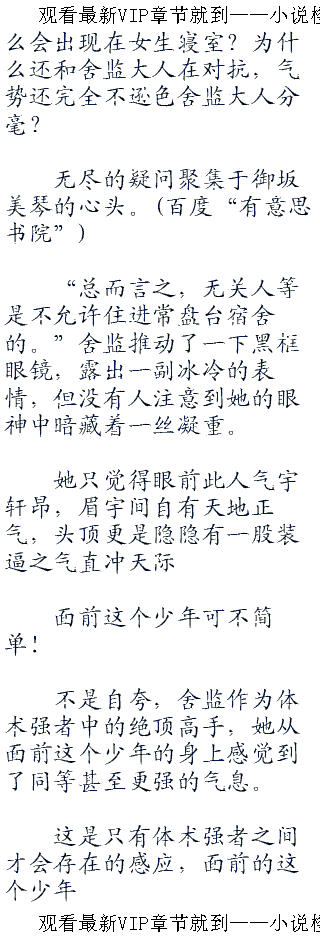 观看最新VIP章节就到——小说检
么会出现在女生寝室？为什
么还和舍监大人在对抗，气
势还完全不逊色舍监大人分
毫？
无尽的疑问聚集于御坂
美琴的心头。(百度“有意思
书院”)
“总而言之，无关人等
是不允许住进常盘台宿舍
的。”舍监推动了一下黑框
眼镜，露出一副冰冷的表
情，但没有人注意到她的眼
神中暗藏着一丝凝重。
她只觉得眼前此人气宇
轩昂，眉宇间自有天地正
气，头顶更是隐隐有一股装
逼之气直冲天际
面前这个少年可不简
单！
不是自夸，舍监作为体
术强者中的绝顶高手，她从
面前这个少年的身上感觉到
了同等甚至更强的气息。
这是只有体术强者之间
才会存在的感应，面前的这
个少年
观看最新VIP章节就到——小说检